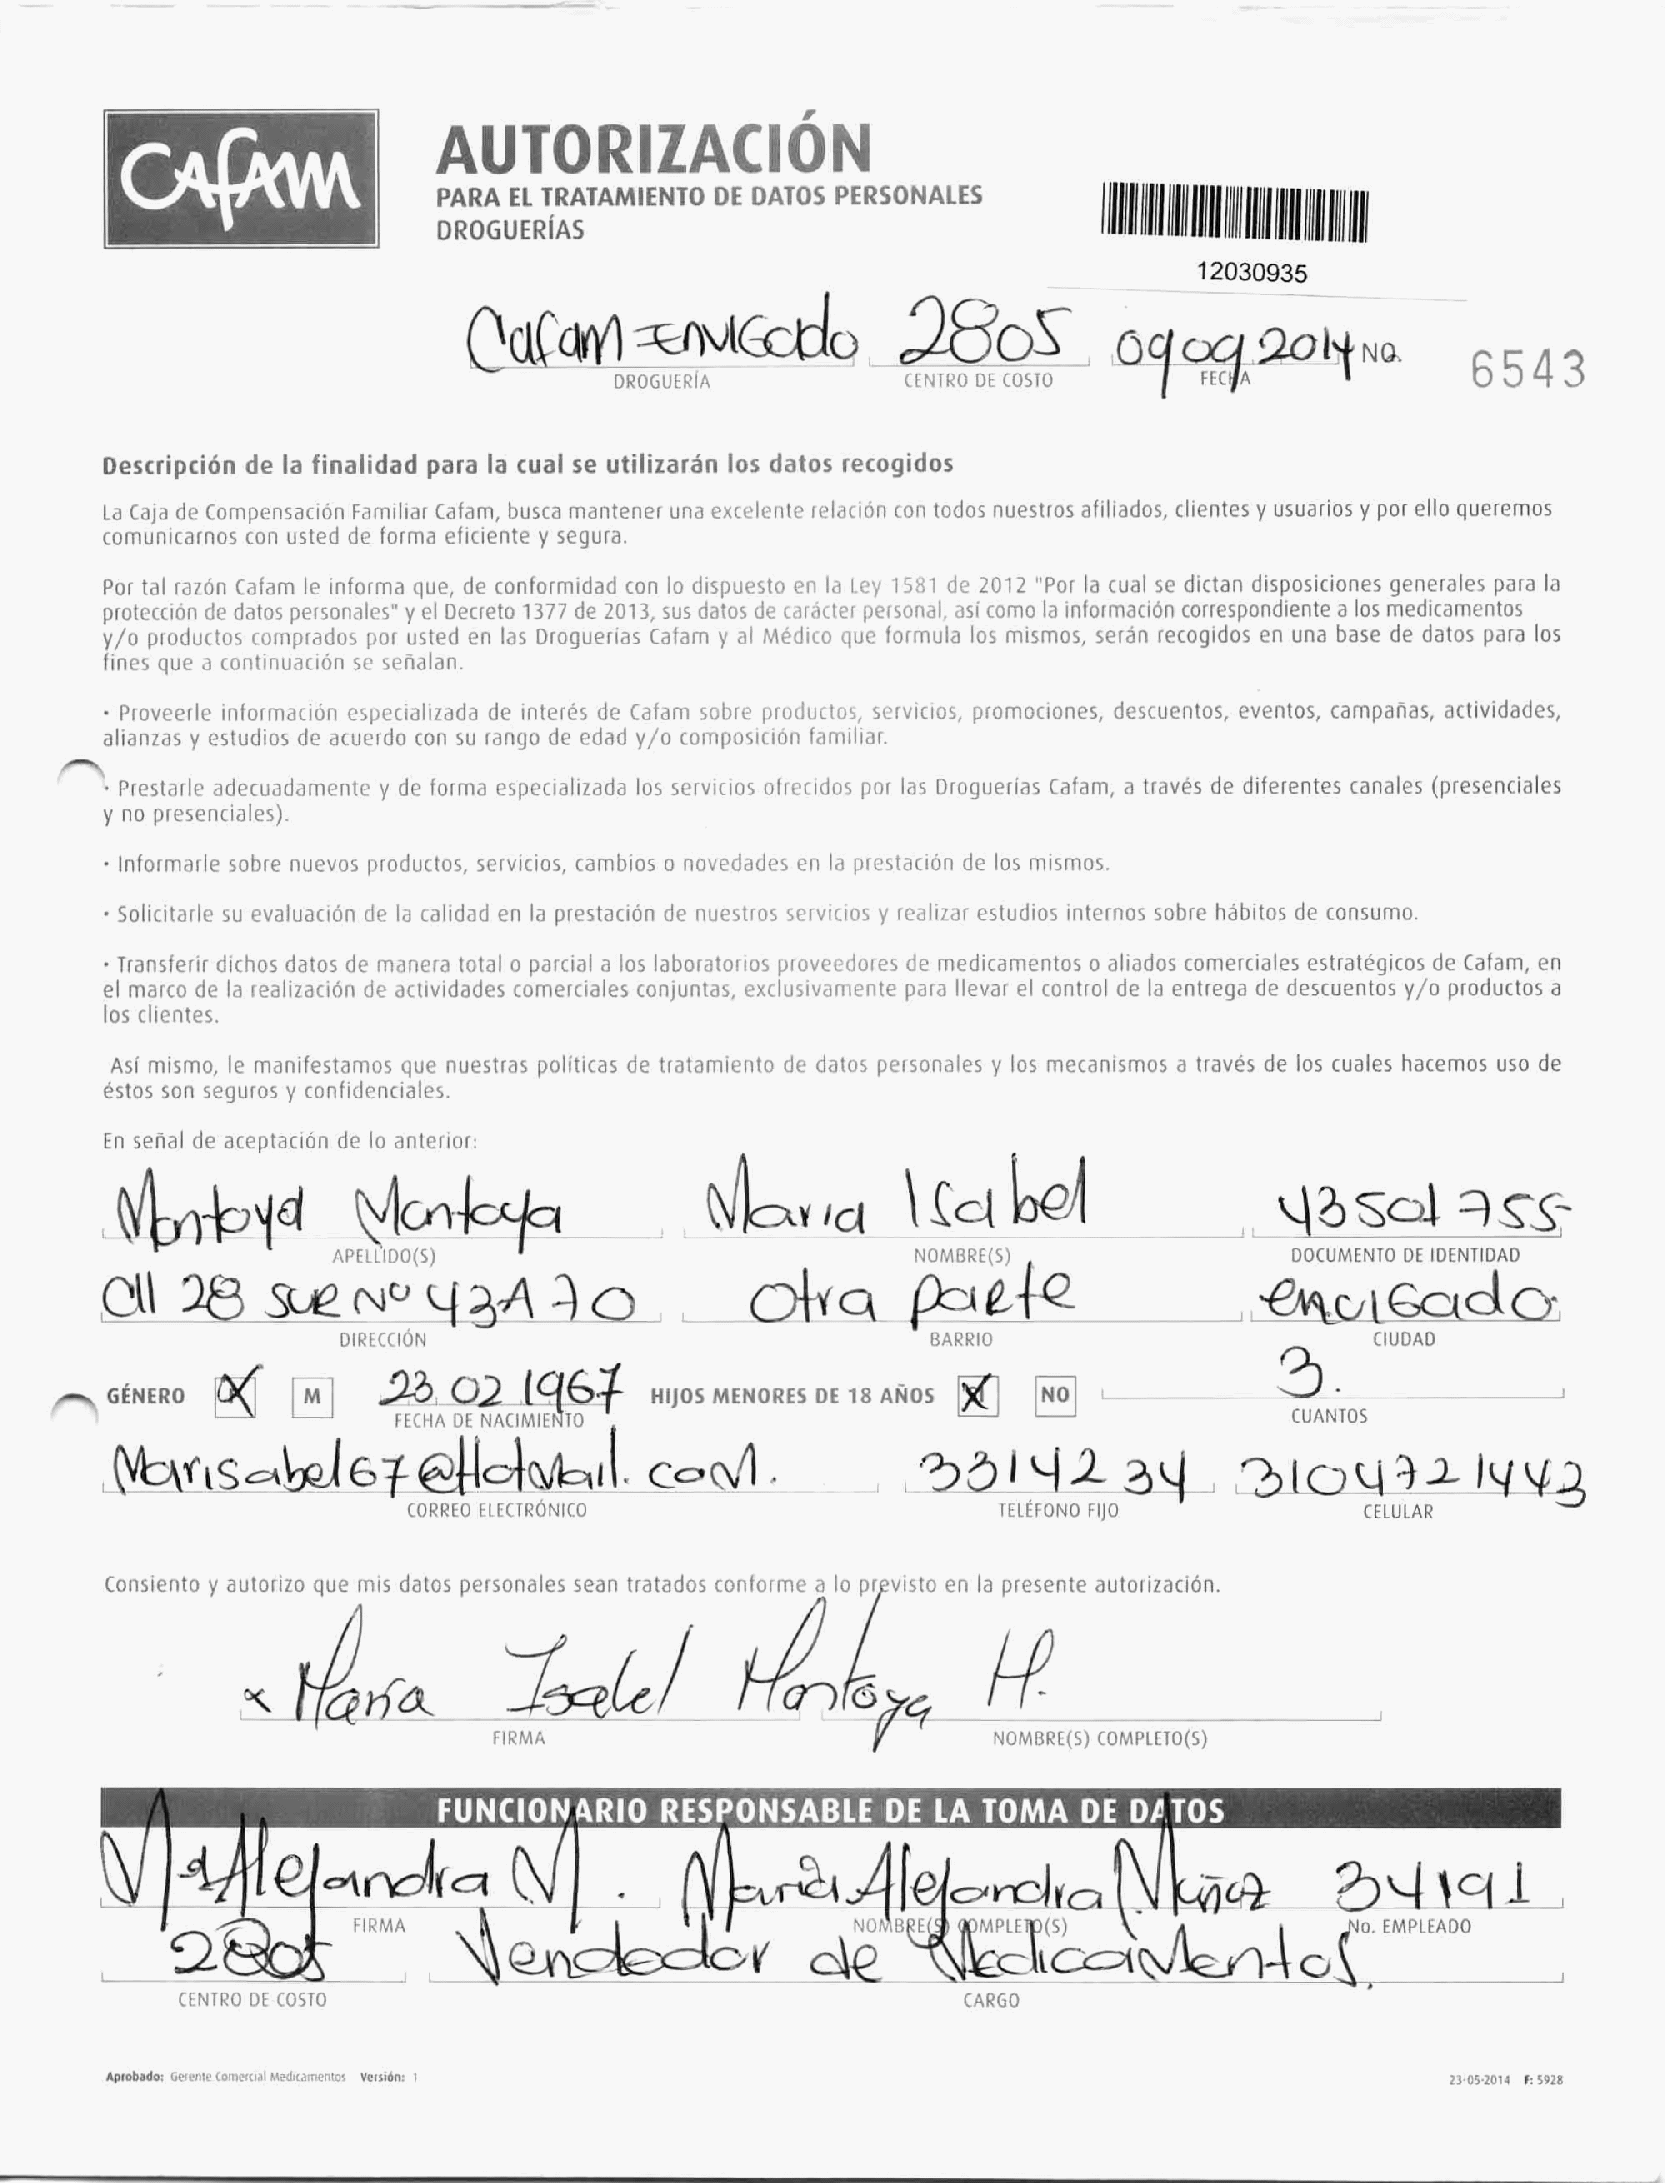 CAFAM
AUTORIZACIÓN
PARA EL TRATAMIENTO DE DATOS PERSONALES
DROGUERÍAS
12030935
Cafam Envigado 2805 09 09 2014 NO. 6543
DROGUERÍA CENTRO DE COSTO FECHA
Descripción de la finalidad para la cual se utilizarán los datos recogidos
La Caja de Compensación Familiar Cafam, busca mantener una excelente relación con todos nuestros afiliados, clientes y usuarios y por ello queremos
comunicarnos con usted de forma eficiente y segura.
Por tal razón Cafam le informa que, de conformidad con lo dispuesto en la Ley 1581 de 2012 "Por la cual se dictan disposiciones generales para la
protección de datos personales" y el Decreto 1377 de 2013, sus datos de carácter personal, así como la información correspondiente a los medicamentos
y/o productos comprados por usted en las Droguerías Cafam y al Médico que formula los mismos, serán recogidos en una base de datos para los
fines que a continuación se señalan.
· Proveerle información especializada de interés de Cafam sobre productos, servicios, promociones, descuentos, eventos, campañas, actividades,
alianzas y estudios de acuerdo con su rango de edad y/o composición familiar.
· Prestarle adecuadamente y de forma especializada los servicios ofrecidos por las Droguerías Cafam, a través de diferentes canales (presenciales
y no presenciales).
· Informarle sobre nuevos productos, servicios, cambios o novedades en la prestación de los mismos.
· Solicitarle su evaluación de la calidad en la prestación de nuestros servicios y realizar estudios internos sobre hábitos de consumo.
· Transferir dichos datos de manera total o parcial a los laboratorios proveedores de medicamentos o aliados comerciales estratégicos de Cafam, en
el marco de la realización de actividades comerciales conjuntas, exclusivamente para llevar el control de la entrega de descuentos y/o productos a
los clientes.
Así mismo, le manifestamos que nuestras políticas de tratamiento de datos personales y los mecanismos a través de los cuales hacemos uso de
éstos son seguros y confidenciales.
En señal de aceptación de lo anterior:
Montoya Montoya Maria Isabel 43501755
APELLIDO(S) NOMBRE(S) DOCUMENTO DE IDENTIDAD
Cll 28 sur No 43A 70 Otra parte envigado
DIRECCIÓN BARRIO CIUDAD
GÉNERO X M 23 02 1967 HIJOS MENORES DE 18 AÑOS X NO 3.
FECHA DE NACIMIENTO CUANTOS
Marisabel67@Hotmail.com. 3314234 3104721443
CORREO ELECTRÓNICO TELÉFONO FIJO CELULAR
Consiento y autorizo que mis datos personales sean tratados conforme a lo previsto en la presente autorización.
x Maria Isabel Montoya M.
FIRMA NOMBRE(S) COMPLETO(S)
FUNCIONARIO RESPONSABLE DE LA TOMA DE DATOS
Ma Alejandra M. Maria Alejandra Muñoz 34191
FIRMA NOMBRE(S) COMPLETO(S) No. EMPLEADO
2805 Vendedor de Medicamentos.
CENTRO DE COSTO CARGO
Aprobado: Gerente Comercial Medicamentos Versión: 1 23-05-2014 F: 5928